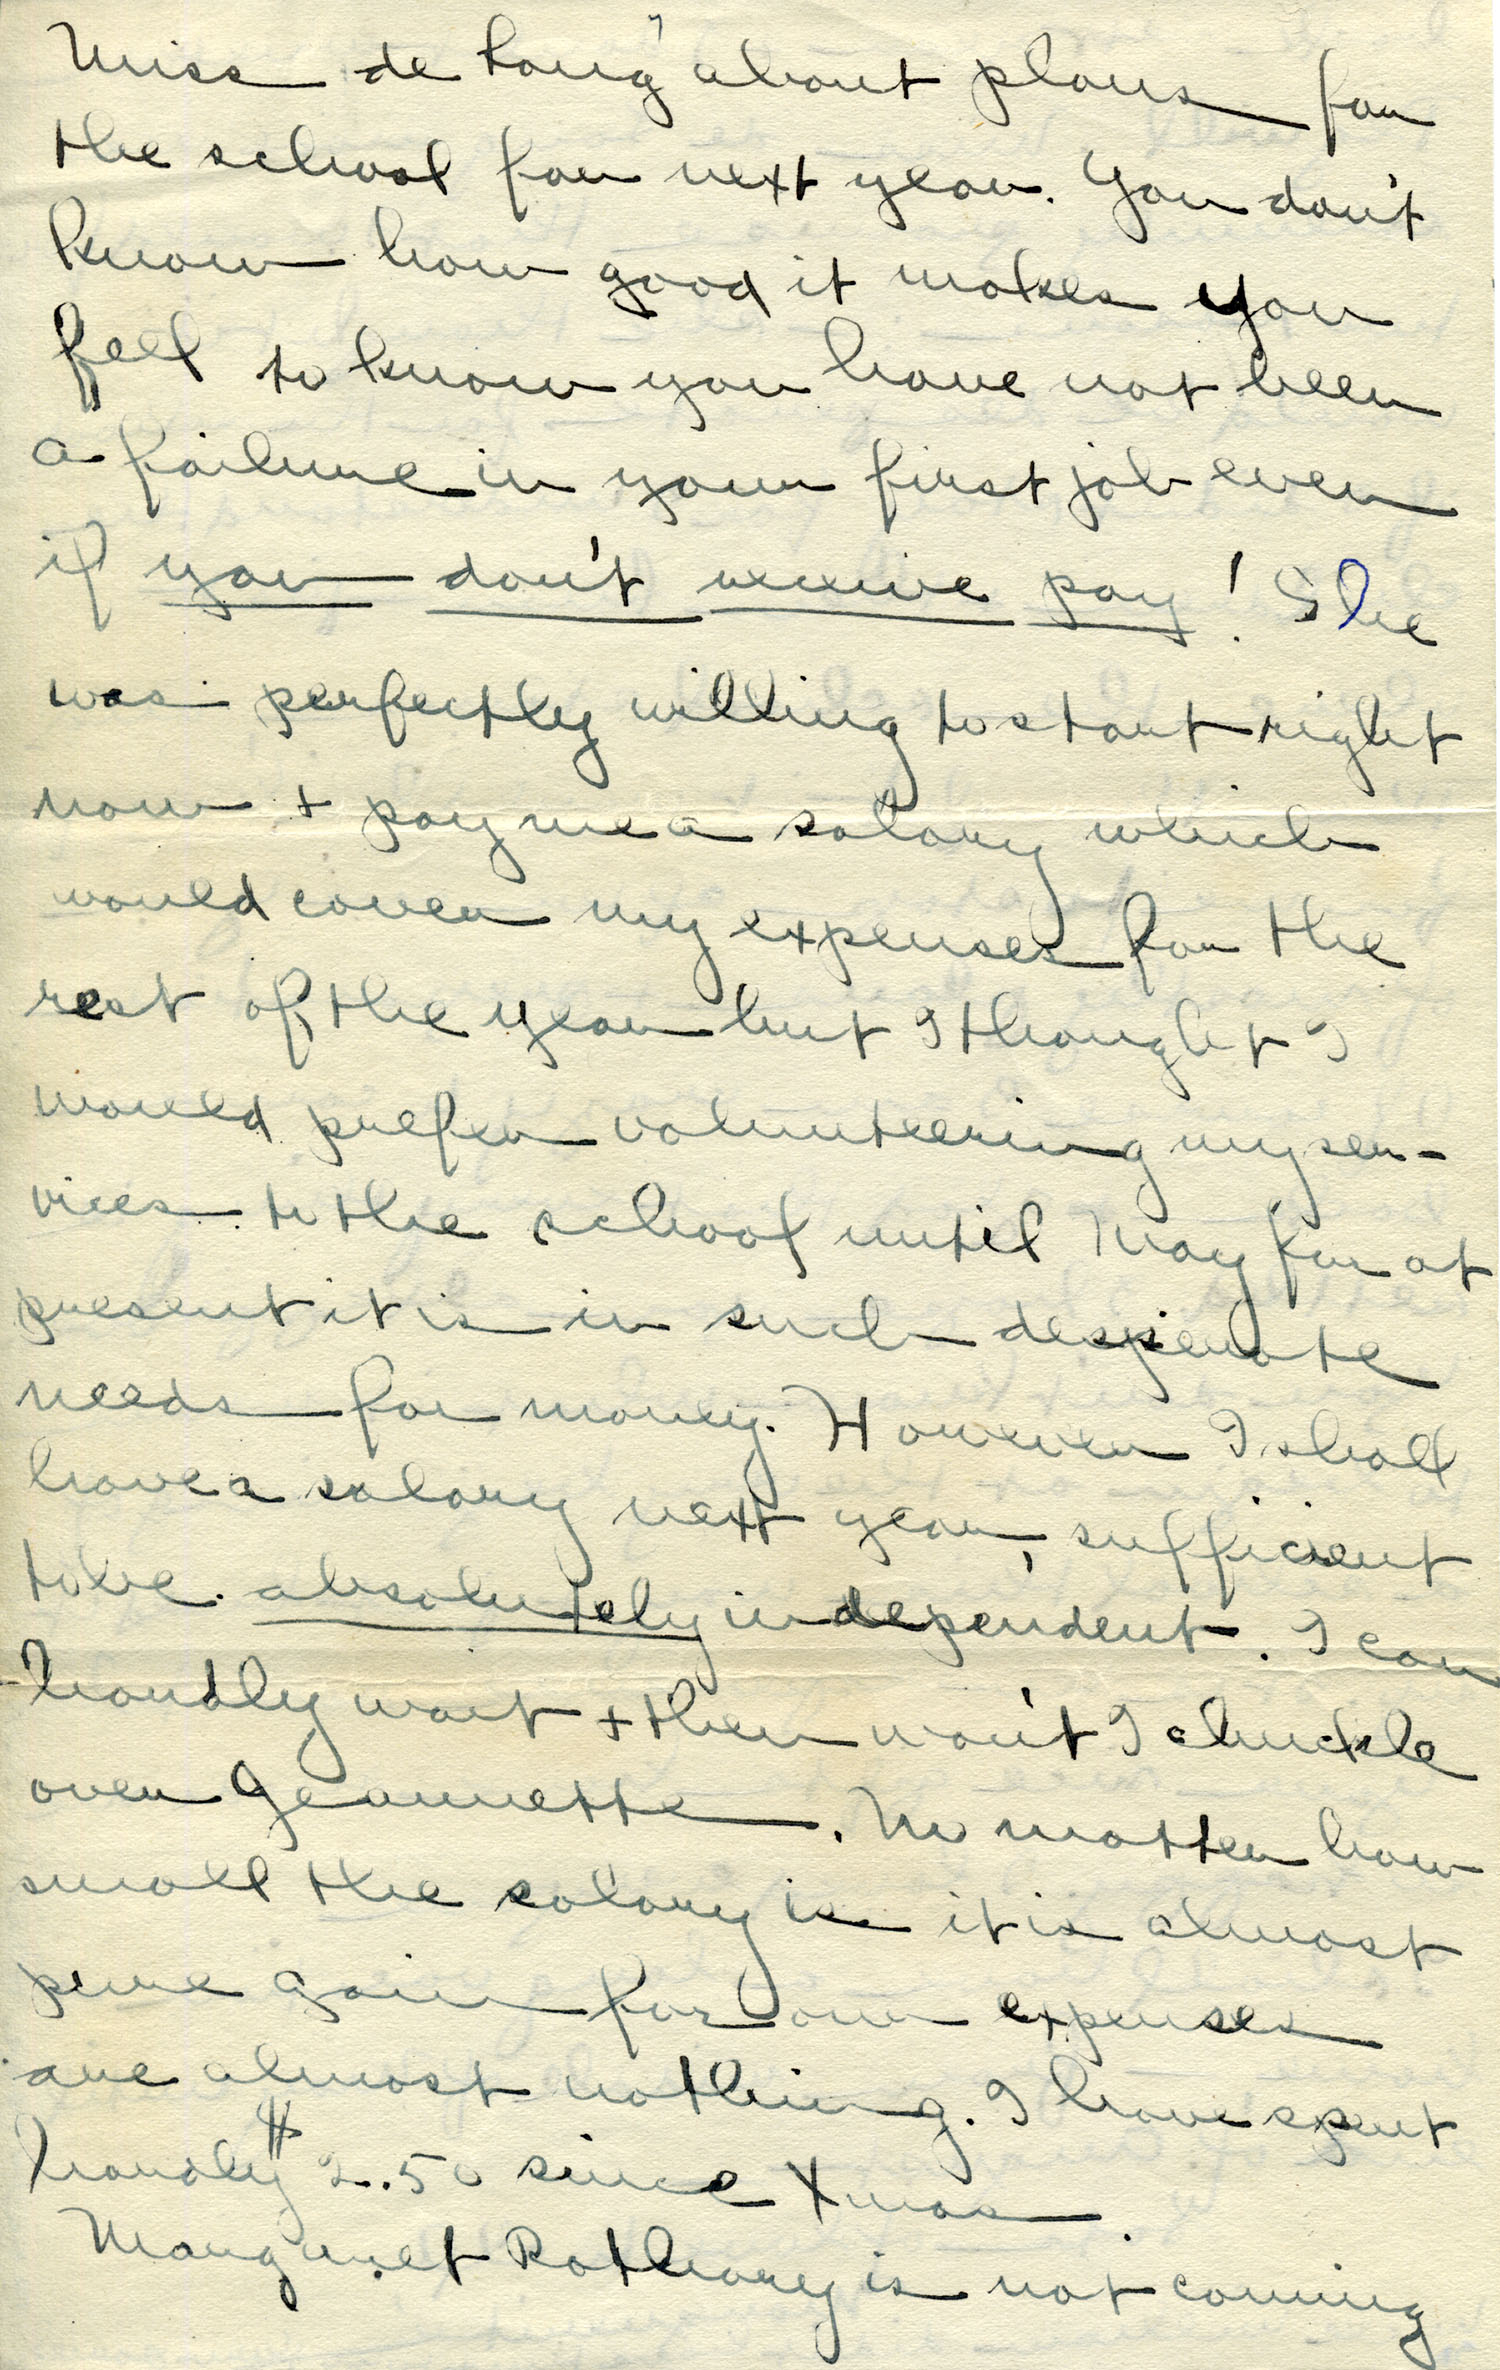 Miss de Long about plans for
the school for next year. You don't
know how good it makes you
feel to know you have not been
a failure in your first job even
if you don't receive pay! She
was perfectly willing to start right
now + pay me a salary which
would cover my expenses for the
rest of the year but I thought I
would prefer volunteering my ser-
vices to the school until May for at
present it is in such desperate
needs for money. However I shall
have a salary next year, sufficient
to be absolutely independent. I can
hardly wait + then won't I chuckle
over Jeannette. No matter how
small the salary is it is almost
pure gain for our expenses
are almost nothing. I have spent
hardly $2.50 since Xmas.
Margaret Rothary is not coming